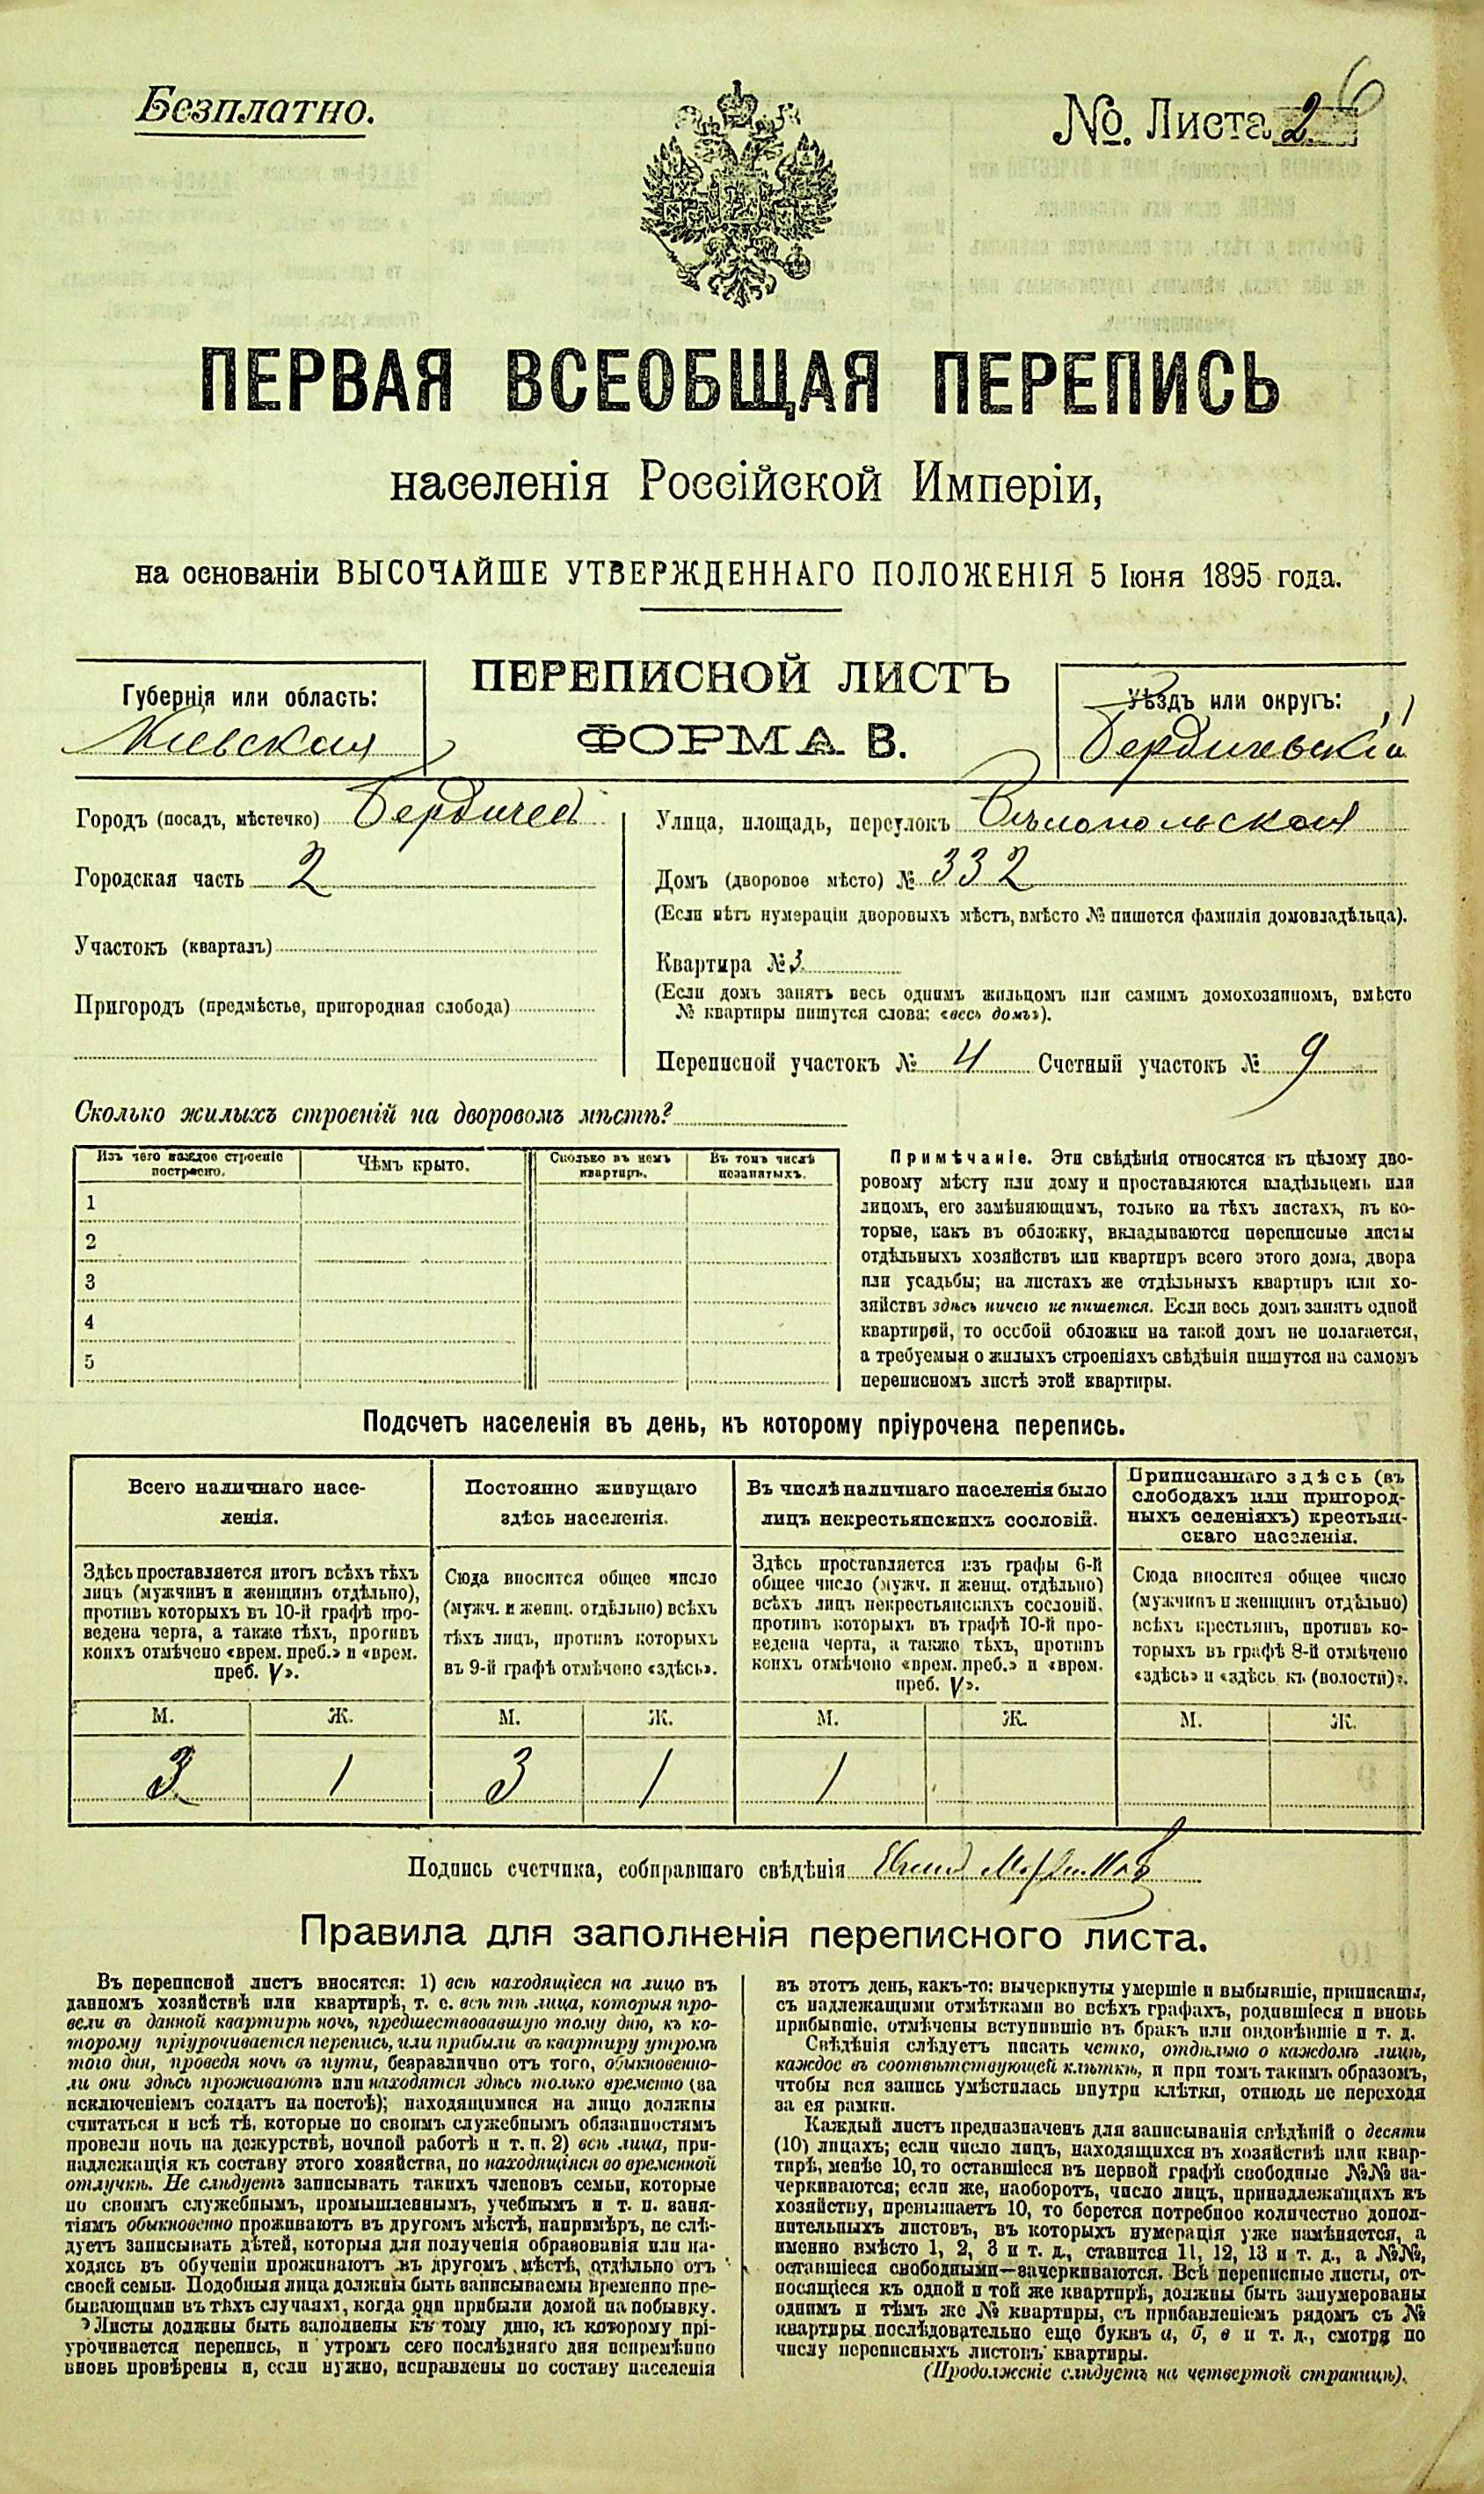 Безплатно.
№. Листа 2 6
ПЕРВАЯ ВСЕОБЩАЯ ПЕРЕПИСЬ
населенія Россійской Имперіи,
на основаніи ВЫСОЧАЙШЕ УТВЕРЖДЕННАГО ПОЛОЖЕНІЯ 5 Іюня 1895 года.
ПЕРЕПИСНОЙ ЛИСТЪ
ФОРМА В.
Губернія или область:
Кіевская
Уѣздъ или округъ:
Бердичевскій
Городъ (посадъ, мѣстечко) Бердичевъ
Городская часть 2
Участокъ (кварталъ)
Пригородъ (предмѣстье, пригородная слобода)
Улица, площадь, переулокъ Бѣлопольская
Домъ (дворовое мѣсто) № 332
(Если нѣтъ нумераціи дворовыхъ мѣстъ, вмѣсто № пишется фамилія домовладѣльца).
Квартира № 3
(Если домъ занятъ весь однимъ жильцомъ или самимъ домохозяиномъ, вмѣсто
№ квартиры пишутся слова: «весь домъ»).
Переписной участокъ № 4 Счетный участокъ № 9
Сколько жилыхъ строеній на дворовомъ мѣстѣ?
Изъ чего каждое строеніе
построено.
Чѣмъ крыто.
Сколько въ немъ
квартиръ.
Въ томъ числѣ
незанятыхъ.
1
2
3
4
5
Примѣчаніе. Эти свѣдѣнія относятся къ цѣлому дво-
ровому мѣсту или дому и проставляются владѣльцемъ или
лицомъ, его замѣняющимъ, только на тѣхъ листахъ, въ ко-
торые, какъ въ обложку, вкладываются переписные листы
отдѣльныхъ хозяйствъ или квартиръ всего этого дома, двора
или усадьбы; на листахъ же отдѣльныхъ квартиръ или хо-
зяйствъ здѣсь ничего не пишется. Если весь домъ занятъ одной
квартирой, то особой обложки на такой домъ не полагается,
а требуемыя о жилыхъ строеніяхъ свѣдѣнія пишутся на самомъ
переписномъ листѣ этой квартиры.
Подсчетъ населенія въ день, къ которому пріурочена перепись.
Всего наличнаго насе-
ленія.
Здѣсь проставляется итогъ всѣхъ тѣхъ
лицъ (мужчинъ и женщинъ отдѣльно),
противъ которыхъ въ 10-й графѣ про-
ведена черта, а также тѣхъ, противъ
коихъ отмѣчено «врем. преб.» и «врем.
преб. V».
Постоянно живущаго
здѣсь населенія.
Сюда вносится общее число
(мужч. и женщ. отдѣльно) всѣхъ
тѣхъ лицъ, противъ которыхъ
въ 9-й графѣ отмѣчено «здѣсь».
Въ числѣ наличнаго населенія было
лицъ некрестьянскихъ сословій.
Здѣсь проставляется изъ графы 6-й
общее число (мужч. и женщ. отдѣльно)
всѣхъ лицъ некрестьянскихъ сословій,
противъ которыхъ въ графѣ 10-й про-
ведена черта, а также тѣхъ, противъ
коихъ отмѣчено «врем. преб.» и «врем.
преб. V».
Приписаннаго здѣсь (въ
слободахъ или пригород-
ныхъ селеніяхъ) крестьян-
скаго населенія.
Сюда вносится общее число
(мужчинъ и женщинъ отдѣльно)
всѣхъ крестьянъ, противъ ко-
торыхъ въ графѣ 8-й отмѣчено
«здѣсь» и «здѣсь къ (волости)».
М. Ж. М. Ж. М. Ж. М. Ж.
3 1 3 1 1
Подпись счетчика, собиравшаго свѣдѣнія
Правила для заполненія переписного листа.
Въ переписной листъ вносятся: 1) всѣ находящіеся на лицо въ
данномъ хозяйствѣ или квартирѣ, т. е. всѣ тѣ лица, которыя про-
вели въ данной квартирѣ ночь, предшествовавшую тому дню, къ ко-
торому пріурочивается перепись, или прибыли въ квартиру утромъ
того дня, проведя ночь въ пути, безразлично отъ того, обыкновенно-
ли они здѣсь проживаютъ или находятся здѣсь только временно (за
исключеніемъ солдатъ на постоѣ); находящимися на лицо должны
считаться и всѣ тѣ, которые по своимъ служебнымъ обязанностямъ
провели ночь на дежурствѣ, ночной работѣ и т. п. 2) всѣ лица, при-
надлежащія къ составу этого хозяйства, но находящіяся во временной
отлучкѣ. Не слѣдуетъ записывать такихъ членовъ семьи, которые
по своимъ служебнымъ, промышленнымъ, учебнымъ и т. п. заня-
тіямъ обыкновенно проживаютъ въ другомъ мѣстѣ, напримѣръ, не слѣ-
дуетъ записывать дѣтей, которыя для полученія образованія или на-
ходясь въ обученіи проживаютъ въ другомъ мѣстѣ, отдѣльно отъ
своей семьи. Подобныя лица должны быть записываемы временно пре-
бывающими въ тѣхъ случаяхъ, когда они прибыли домой на побывку.
Листы должны быть заполнены къ тому дню, къ которому прі-
урочивается перепись, и утромъ сего послѣдняго дня непремѣнно
вновь провѣрены и, если нужно, исправлены по составу населенія
въ этотъ день, какъ-то: вычеркнуты умершіе и выбывшіе, приписаны,
съ надлежащими отмѣтками во всѣхъ графахъ, родившіеся и вновь
прибывшіе, отмѣчены вступившіе въ бракъ или овдовѣвшіе и т. д.
Свѣдѣнія слѣдуетъ писать четко, отдѣльно о каждомъ лицѣ,
каждое въ соотвѣтствующей клѣткѣ, и при томъ такимъ образомъ,
чтобы вся запись умѣстилась внутри клѣтки, отнюдь не переходя
за ея рамки.
Каждый листъ предназначенъ для записыванія свѣдѣній о десяти
(10) лицахъ; если число лицъ, находящихся въ хозяйствѣ или квар-
тирѣ, менѣе 10, то оставшіеся въ первой графѣ свободные №№ за-
черкиваются; если же, наоборотъ, число лицъ, принадлежащихъ къ
хозяйству, превышаетъ 10, то берется потребное количество допол-
нительныхъ листовъ, въ которыхъ нумерація уже измѣняется, а
именно вмѣсто 1, 2, 3 и т. д., ставится 11, 12, 13 и т. д., а №№,
оставшіеся свободными—зачеркиваются. Всѣ переписные листы, от-
носящіеся къ одной и той же квартирѣ, должны быть занумерованы
однимъ и тѣмъ же № квартиры, съ прибавленіемъ рядомъ съ №
квартиры послѣдовательно еще буквъ а, б, в и т. д., смотря по
числу переписныхъ листовъ квартиры.
(Продолженіе слѣдуетъ на четвертой страницѣ).